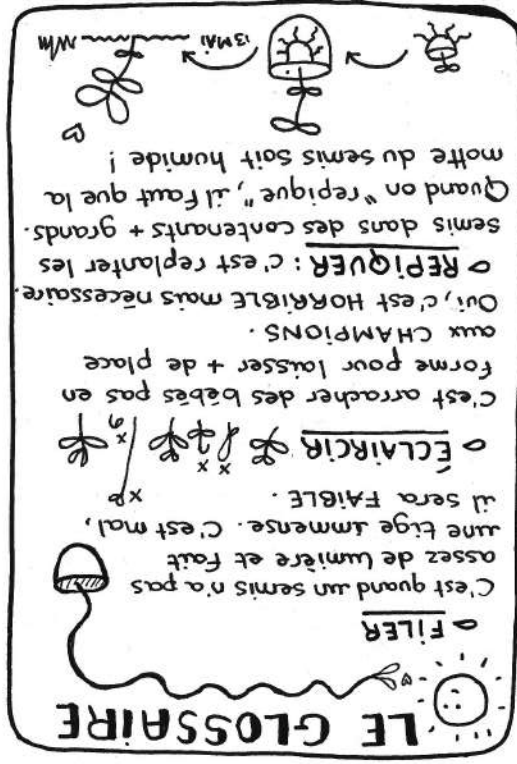 LE GLOSSAIRE
FILER
C'est quand un semis n'a pas
assez de lumière et fait
une tige immense. C'est mal,
il sera FAIBLE.
ÉCLAIRCIR
C'est arracher des bébés pas en
forme pour laisser + de place
aux CHAMPIONS.
Oui, c'est HORRIBLE mais nécessaire.
REPIQUER : c'est replanter les
semis dans des contenants + grands.
Quand on "repique", il faut que la
motte du semis soit humide !
13 MAI